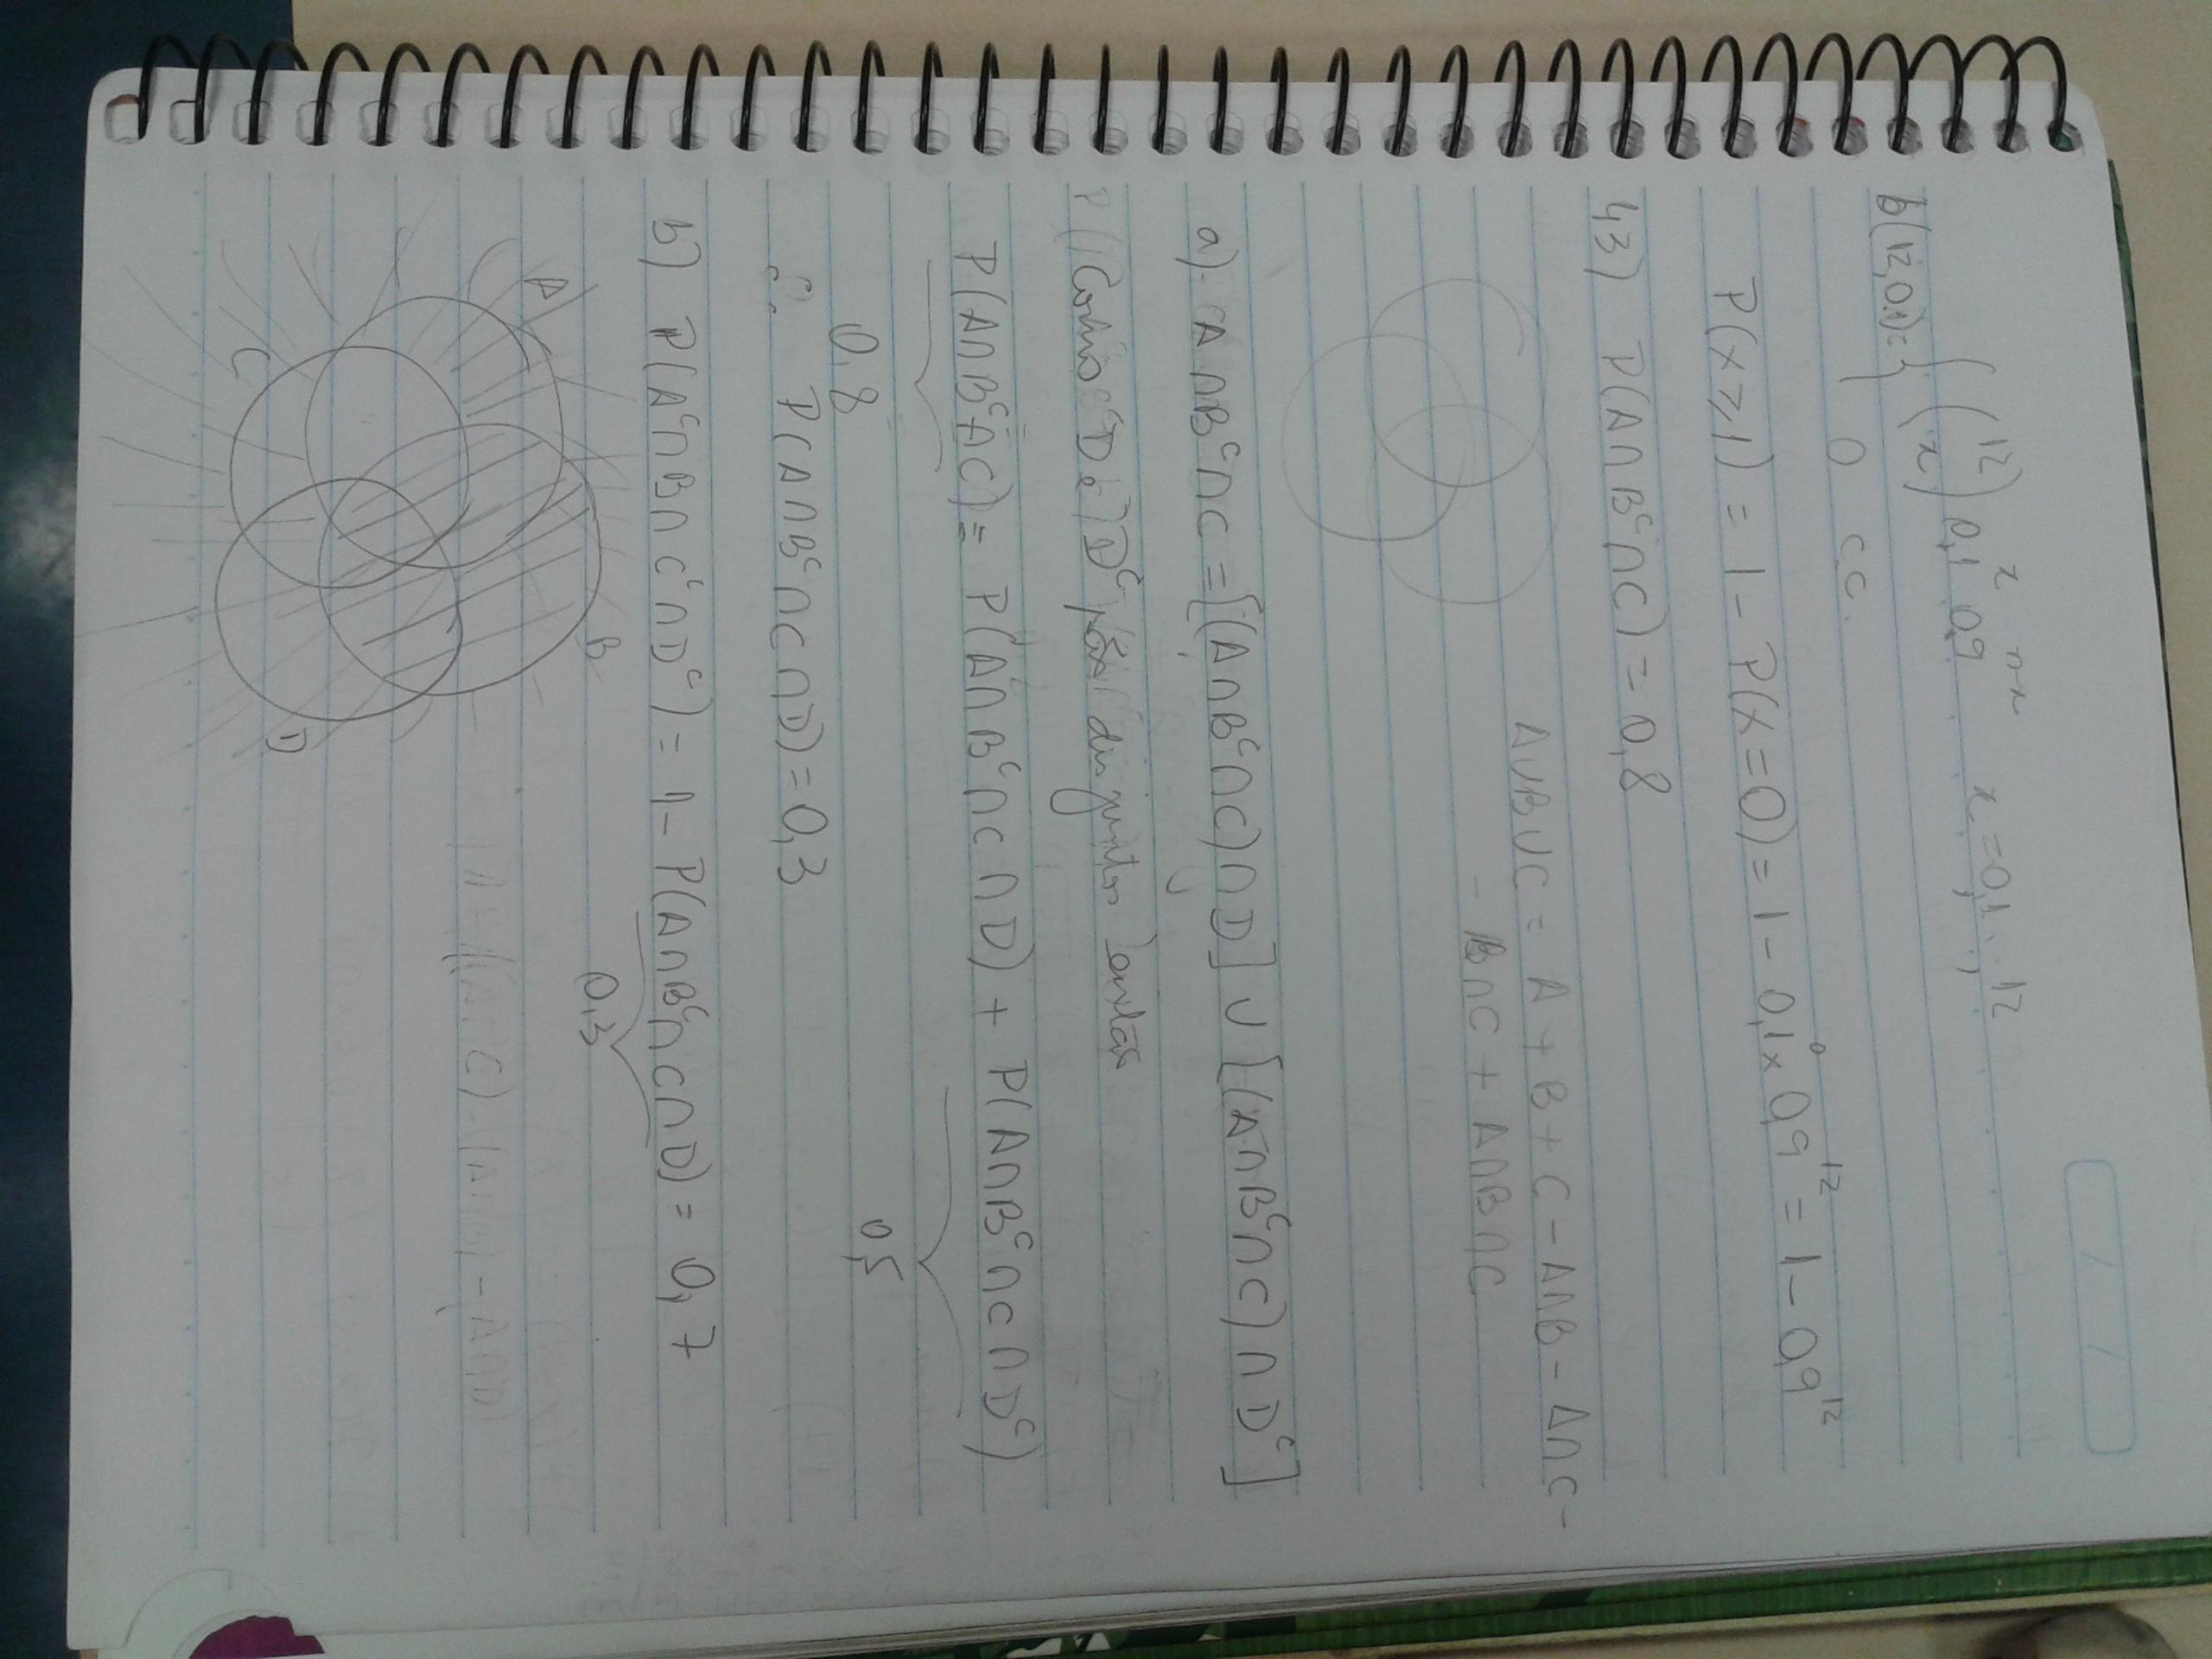 b(12,0.1) = { (12 x) 0,1^x 0,9^n-x x = 0,1..., 12
0 c.c.
P(x ≥ 1) = 1 - P(x = 0) = 1 - 0,1^0 x 0,9^12 = 1 - 0,9^12
43) P(A∩B^c∩C) = 0,8
A∪B∪C = A + B + C - A∩B - A∩C -
- B∩C + A∩B∩C
a) A∩B^c∩C = [(A∩B^c∩C)∩D] ∪ [(A∩B^c∩C)∩D^c]
Como D e D^c são disjuntos então
P(A∩B^c∩C) = P(A∩B^c∩C∩D) + P(A∩B^c∩C∩D^c)
0,8 0,5
∴ P(A∩B^c∩C∩D) = 0,3
b) P(A^c∩B∩C^c∩D^c) = 1 - P(A∩B^c∩C∩D) = 0,7
0,3
A
B
C
D